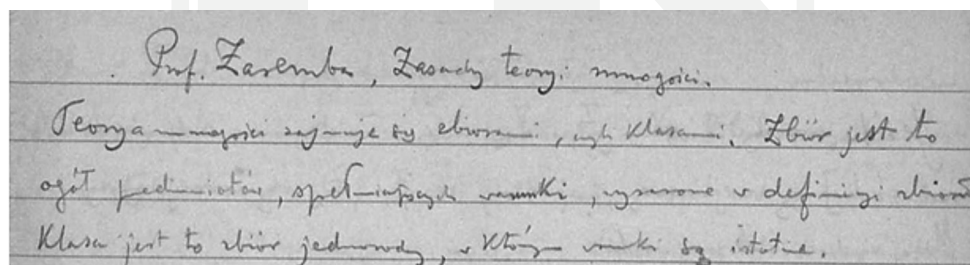 Prof. Zaremba, Zasady teoryi mnogości.
Teorya mnogości zajmuje się zbiorami, czyli klasami. Zbiór jest to
ogół pedmiotów, spełniających warunki, wyrażone w definicyi zbioru
Klasa jest to zbiór jednorodny, w którym warunki są istotne.